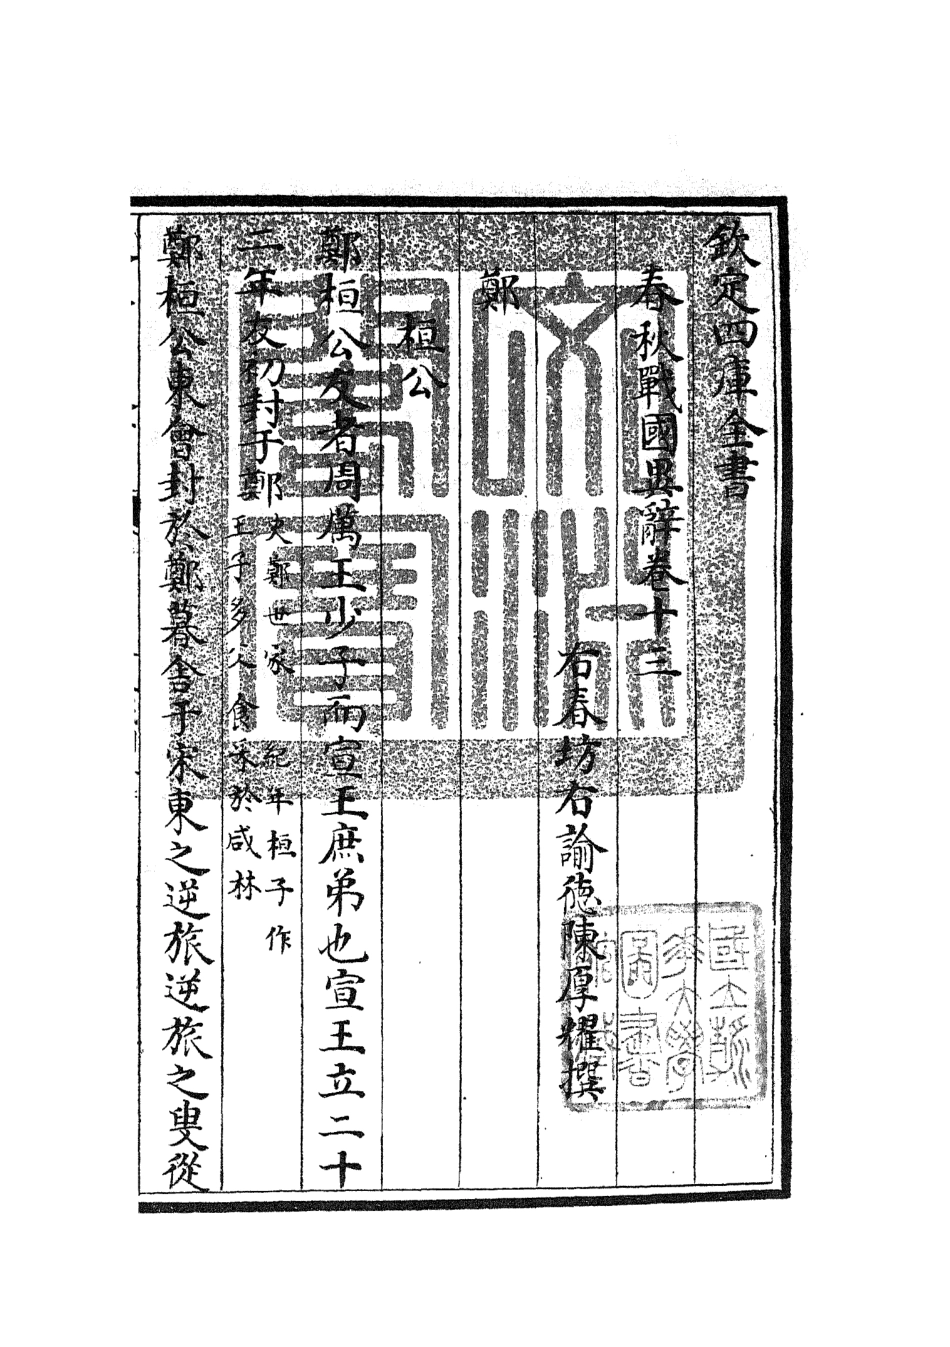 欽定四庫全書
春秋戰國異辭卷十三
右春坊右諭德陳厚耀撰
鄭
桓公
鄭桓公友者周厲王少子而宣王庶弟也宣王立二十
二年友初封于鄭史鄭世家 紀年桓子作王子多父食采於咸林
鄭桓公東會封於鄭暮舍于宋東之逆旅逆旅之叟從
文淵閣寶
國立清華大學圖書館藏